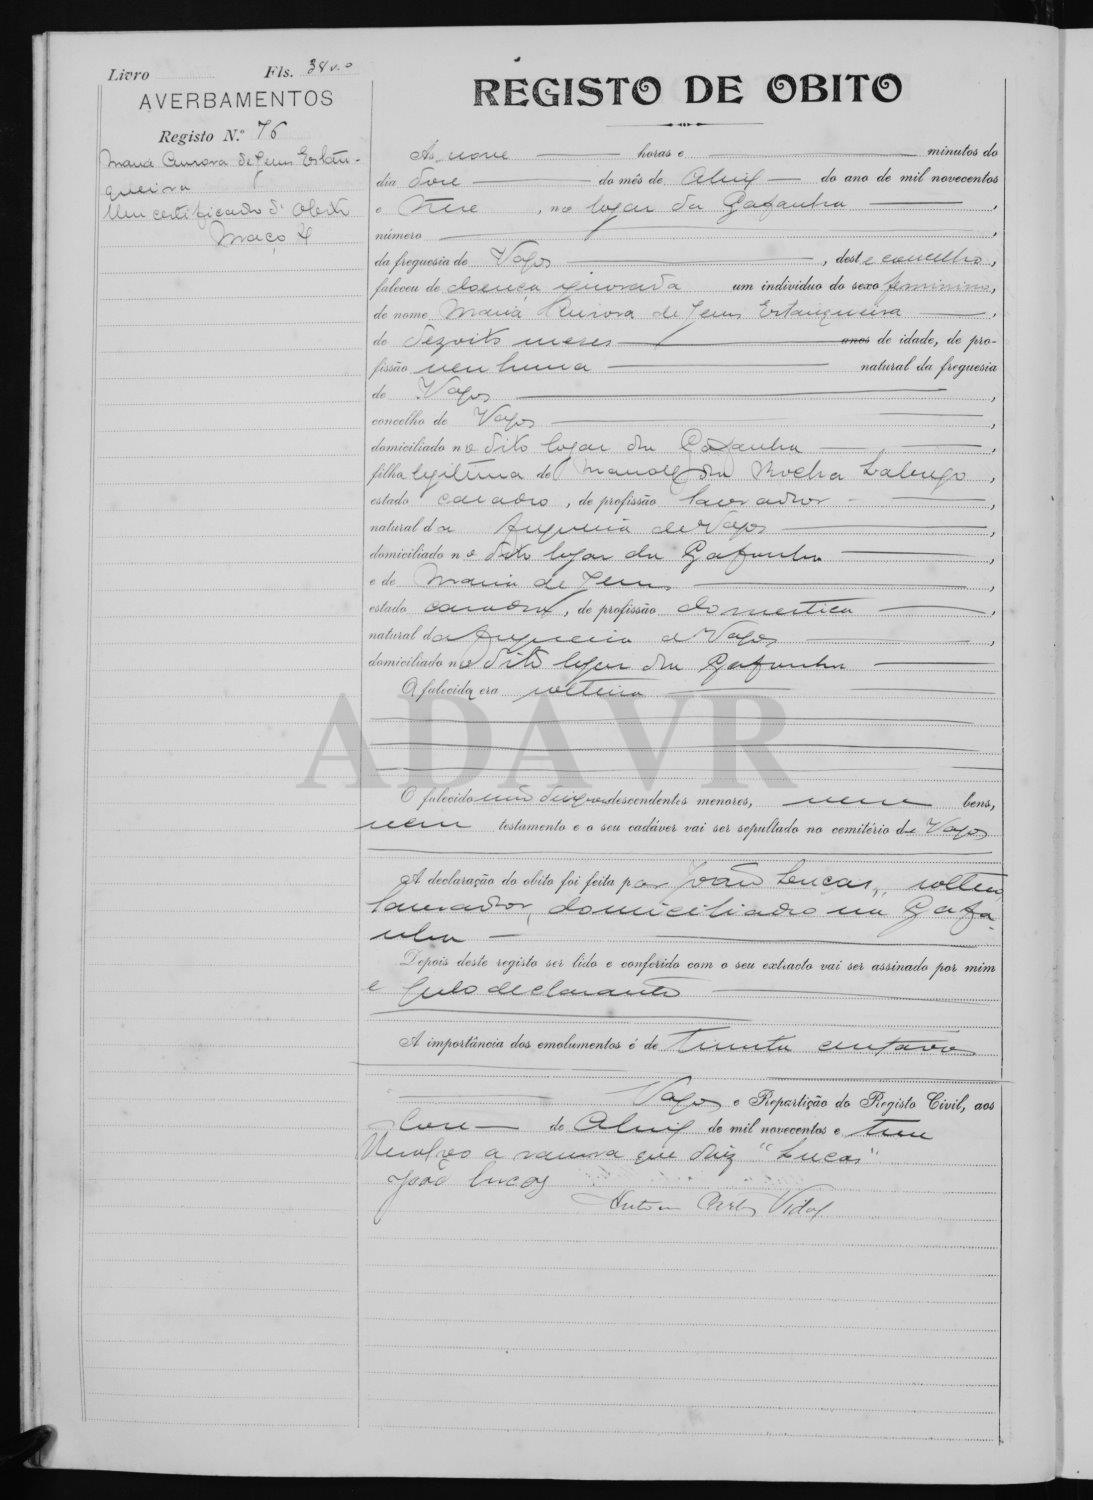 Livro Fls. 38 v.o
AVERBAMENTOS
Registo N.º 76
Maria Aurora de Jesus Estan-
queira
Um certificado d' obito
Maço 4
REGISTO DE OBITO
Ás nove horas e minutos do
dia doze do mês de Abril do ano de mil novecentos
e treze, no logar da Gafanha,
número,
da freguesia de Vagos, deste concelho,
faleceu de doença ignorada um individuo do sexo feminino,
de nome Maria Aurora de Jesus Estanqueira,
de dezoito meses anos de idade, de pro-
fissão nenhuma natural da freguesia
de Vagos,
concelho de Vagos,
domiciliado no dito logar da Gafanha,
filha legitima de Manoel da Rocha,
estado casado, de profissão lavrador,
natural da freguesia de Vagos,
domiciliado no dito logar da Gafanha,
e de Maria de Jesus,
estado casada, de profissão domestica,
natural da freguesia de Vagos,
domiciliado no dito logar da Gafanha
A falecida era solteira
ADAVR
O falecido não deixou descendentes menores, nem bens,
nem testamento e o seu cadáver vai ser sepultado no cemitério de Vagos
A declaração do obito foi feita por João Lucas, solteiro,
lavrador, domiciliado na Gafa-
nha
Depois deste registo ser lido e conferido com o seu extracto vai ser assinado por mim
e pelo declarante
A importância dos emolumentos é de trinta centavos
Vagos e Repartição do Registo Civil, aos
doze de Abril de mil novecentos e treze
Resalvo a rasura que diz "Lucas"
João Lucas
Antonio Carlos Vidal